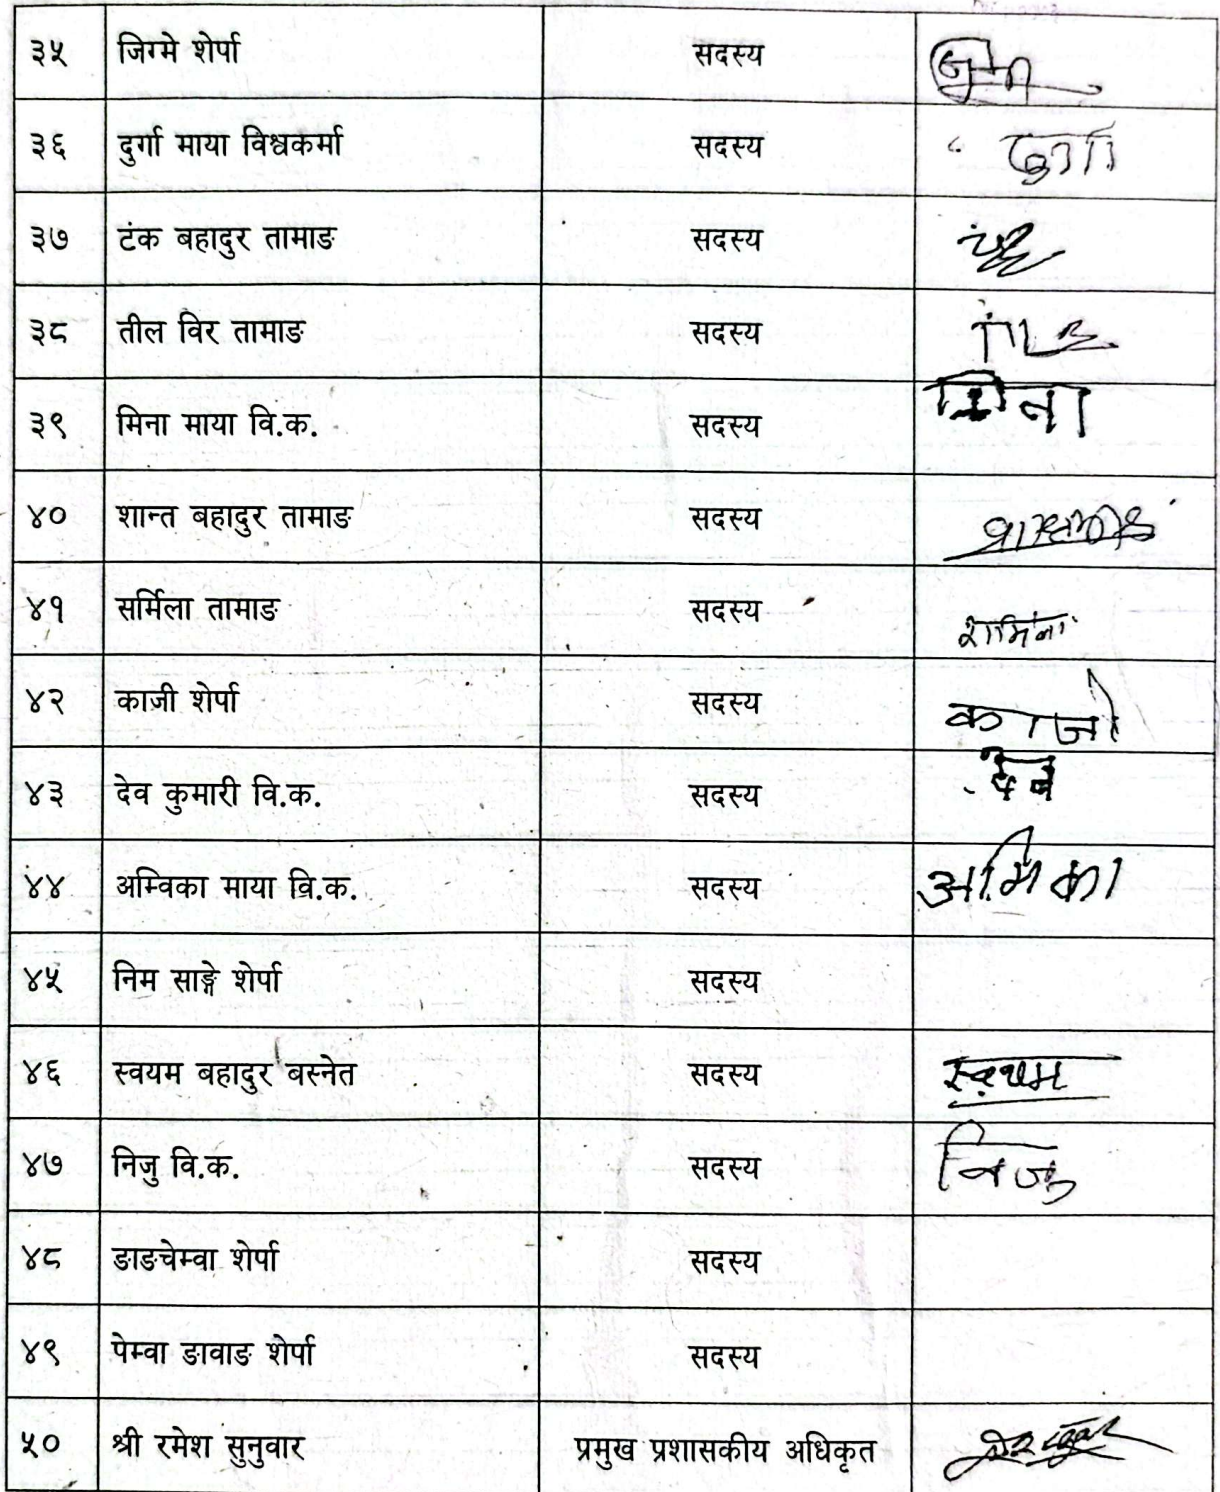 ३५ जिग्मे शेर्पा सदस्य
३६ दुर्गा माया विश्वकर्मा सदस्य
३७ टंक बहादुर तामाङ सदस्य
३८ तील विर तामाङ सदस्य
३९ मिना माया वि.क. सदस्य मिना
४० शान्त बहादुर तामाङ सदस्य
४१ सर्मिला तामाङ सदस्य
४२ काजी शेर्पा सदस्य काजी
४३ देव कुमारी वि.क. सदस्य देव
४४ अम्विका माया वि.क. सदस्य अमिका
४५ निम साङ्गे शेर्पा सदस्य
४६ स्वयम बहादुर बस्नेत सदस्य स्वयम
४७ निजु वि.क. सदस्य निजु
४८ ङाङचेम्वा शेर्पा सदस्य
४९ पेम्वा ङावाङ शेर्पा सदस्य
५० श्री रमेश सुनुवार प्रमुख प्रशासकीय अधिकृत